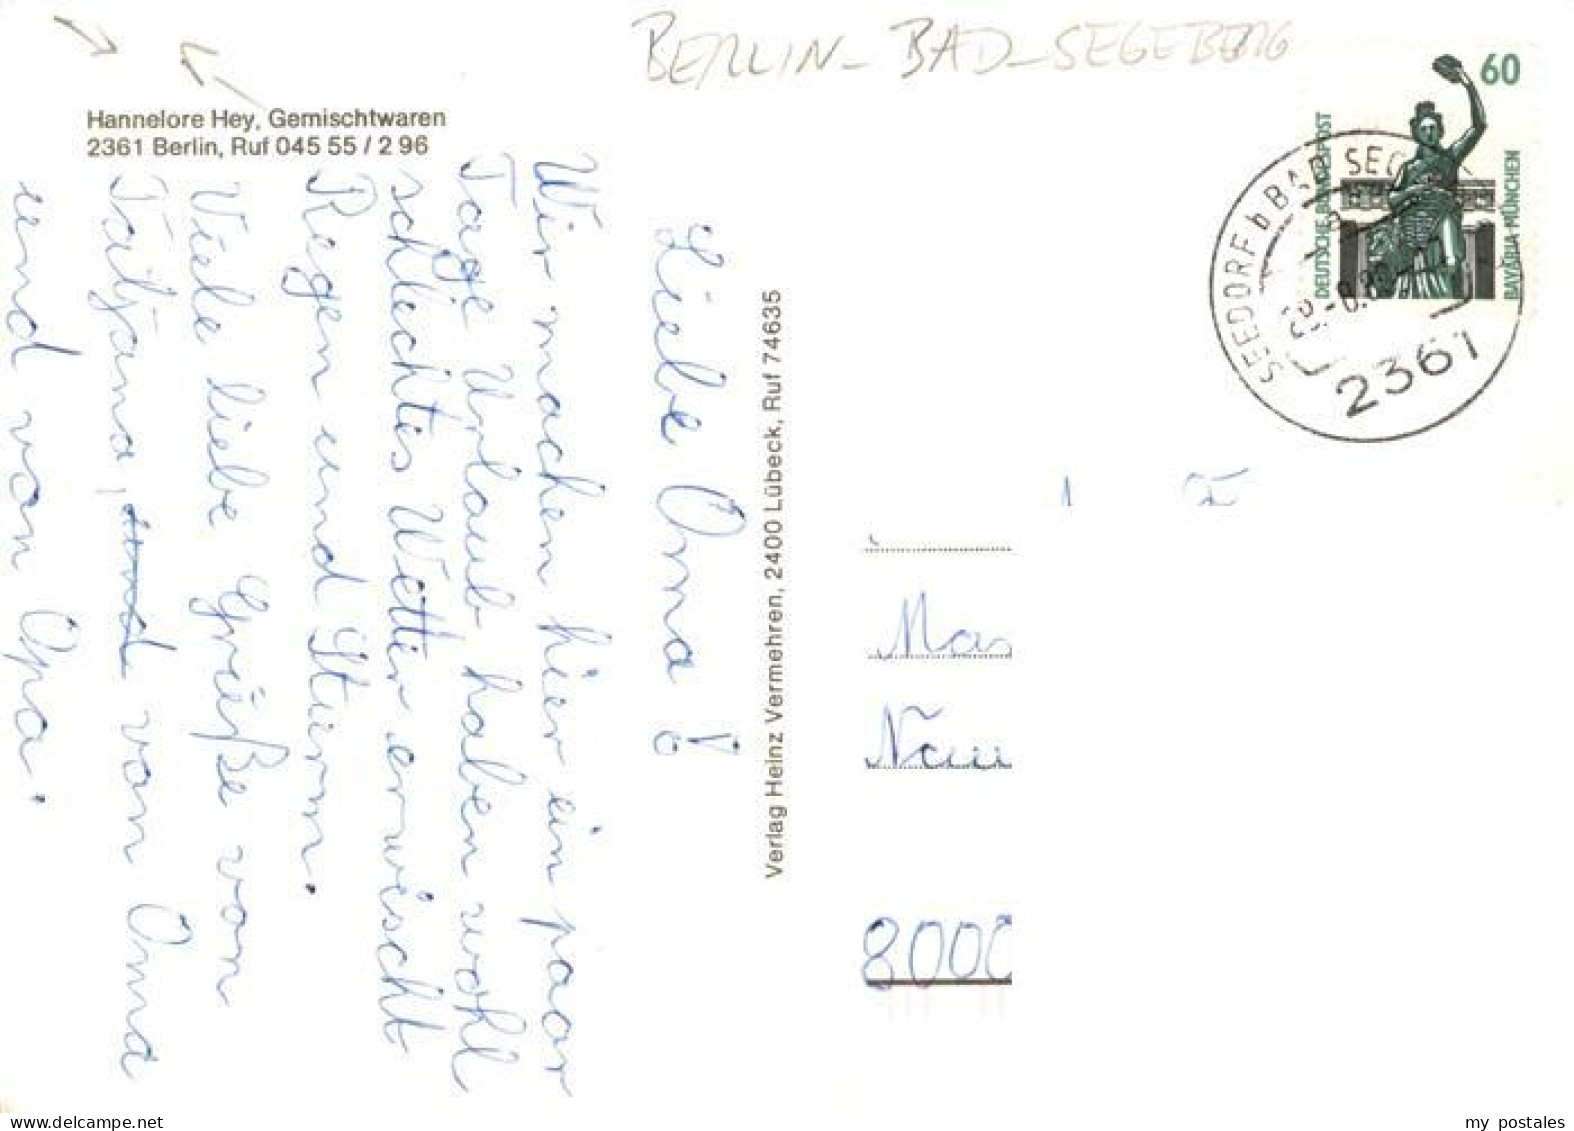 BERLIN - BAD - SEGEBERG
Hannelore Hey, Gemischtwaren
2361 Berlin, Ruf 045 55 / 2 96
Liebe Oma!
Wir machen hier ein paar
Tage Urlaub haben wohl
schlechtes Wetter erwischt
Regen und Sturm.
Viele liebe Grüße von
Tatjana, und von Oma
und von Opa.
Verlag Heinz Vermehren, 2400 Lübeck, Ruf 74635
60
DEUTSCHE BUNDESPOST
BAVARIA MÜNCHEN
SEEDORF b BAD SEG
2361
8000
my postales